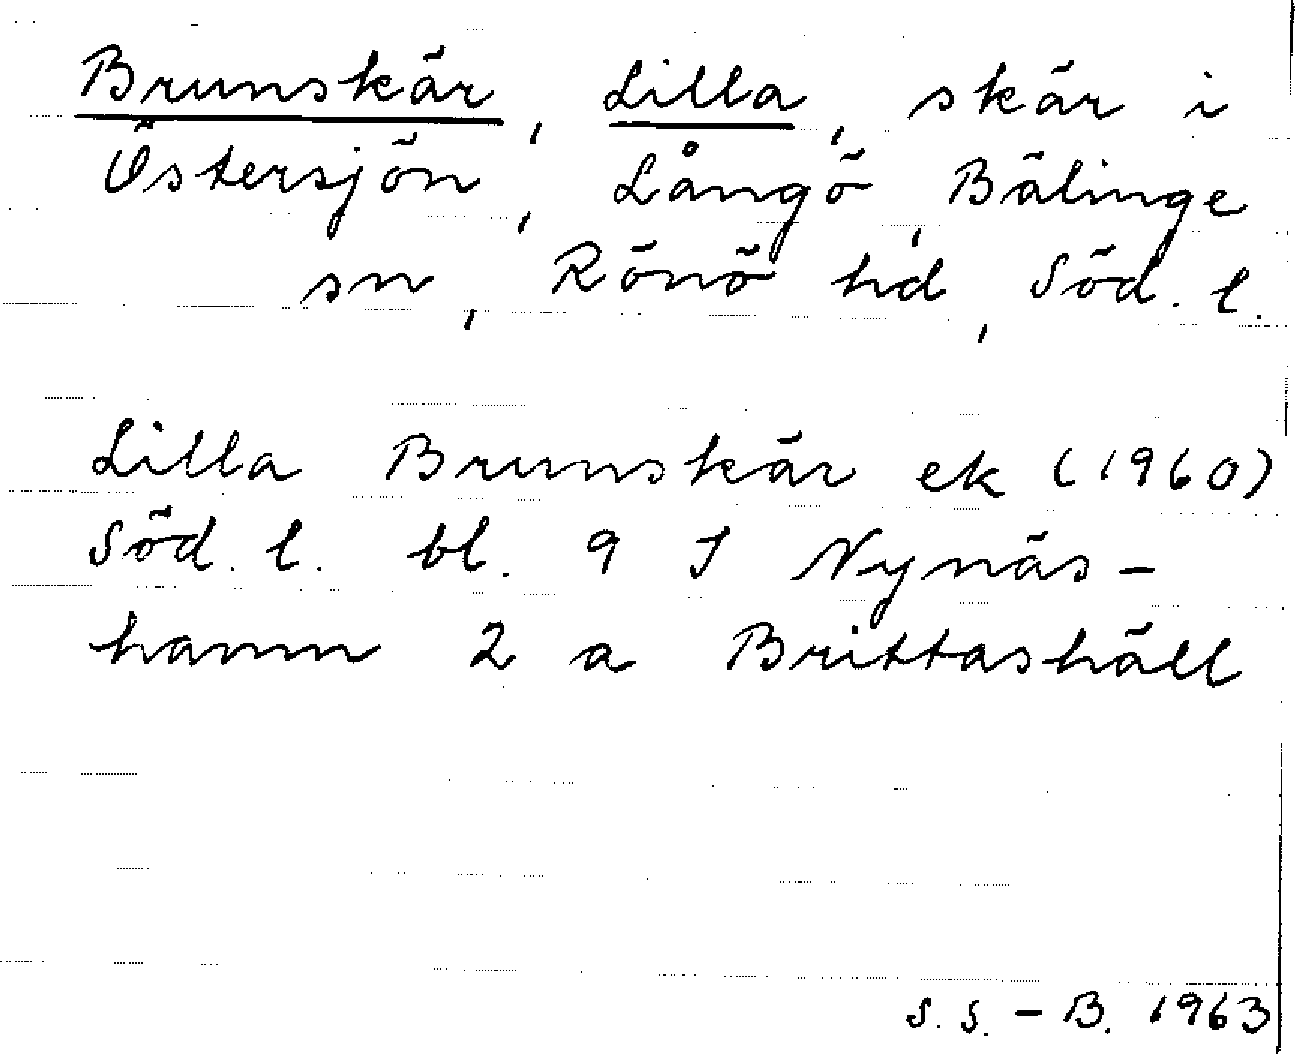 Brunskär, Lilla, skär i
Östersjön, Långö, Bälinge
sn, Rönö hd, Söd. l.
Lilla Brunskär ek (1960)
Söd. l. bl. 9 J Nynäs-
hamn 2 a Brittashäll
S. S. - B. 1963